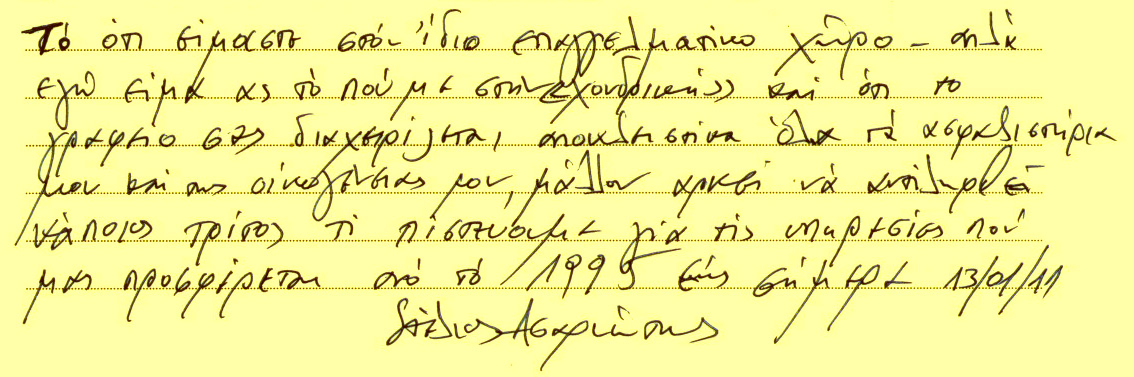 Τό ότι είμαστε στόν ίδιο επαγγελματικο χώρο - αλλά
εγώ είμαι ας τό πούμε στην χονδρικής και ότι το
γραφείο σας διαχειρίζεται, αποκλειστικα όλα τά ασφαλιστήρια
μου και της οικογένειας μου, μάλλον αρκεί νά αντιληφθεί
κάποιος τρίτος τι πιστεύουμε γιά τις υπηρεσίες πού
μας προσφέρεται από τό 1995 έως σήμερα 13/01/11
Στέλιος